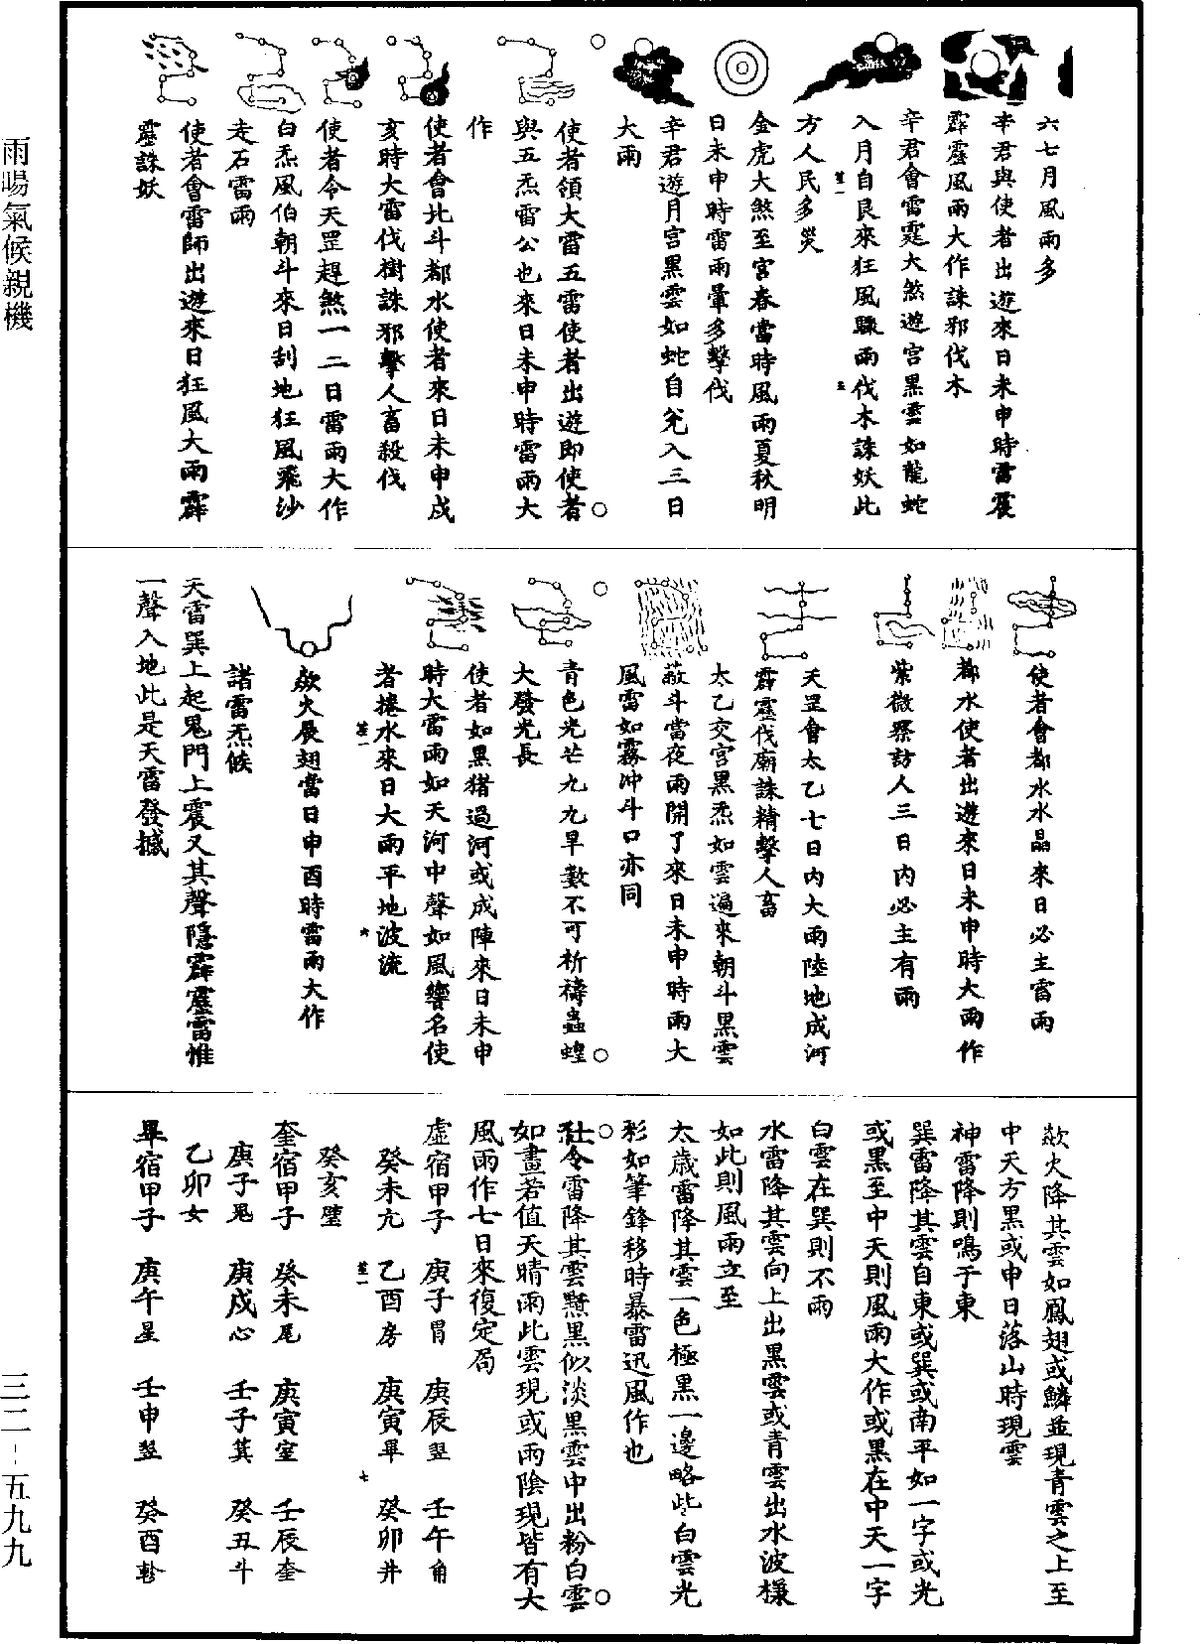 六七月風雨多
辛君與使者出遊來日未申時雷震
霹靂風雨大作誅邪伐木
辛君會雷霆大煞遊宮黑雲如龍蛇
入月自艮來狂風驟雨伐木誅妖此
方人民多災
金虎大煞至宮春當時風雨夏秋明
日未申時雷雨暈多擊伐
辛君遊月宮黑雲如蛇自兊入三日
大雨
使者領大雷五雷使者出遊即使者
與五炁雷公也來日未申時雷雨大
作
使者會北斗都水使者來日未申戍
亥時大雷伐樹誅邪擊人畜殺伐
使者令天罡趕煞一二日雷雨大作
白炁風伯朝斗來日刮地狂風飛沙
走石雷雨
使者會雷師出遊來日狂風大雨霹
靂誅妖
使者會都水水晶來日必主雷雨
都水使者出遊來日未申時大雨作
紫微察訪人三日內必主有雨
天罡會太乙七日內大雨陸地成河
霹靂伐廟誅精擊人畜
太乙交宮黑炁如雲遍來朝斗黑雲
蔽斗當夜雨開了來日未申時雨大
風雷如霧沖斗口亦同
青色光芒九九旱數不可祈禱蟲蝗
大發光長
使者如黑猪過河或成陣來日未申
時大雷雨如天河中聲如風響名使
者捲水來日大雨平地波流
歘火展翅當日申酉時雷雨大作
諸雷炁候
天雷巽上起鬼門上震又其聲隱霹靂雷惟
一聲入地此是天雷發撼
歘火降其雲如鳳翅或鱗並現青雲之上至
中天方黑或申日落山時現雲
神雷降則鳴于東
巽雷降其雲自東或巽或南平如一字或光
或黑至中天則風雨大作或黑在中天一字
白雲在巽則不雨
水雷降其雲向上出黑雲或青雲出水波樣
如此則風雨立至
太歲雷降其雲一色極黑一邊略些白雲光
彩如筆鋒移時暴雷迅風作也
社令雷降其雲黫黑似淡黑雲中出粉白雲
如畫若值天晴雨此雲現或雨陰現皆有大
風雨作七日來復定局
虛宿甲子 庚子胃 庚辰翌 壬午角
癸未亢 乙酉房 庚寅畢 癸卯井
癸亥壁
奎宿甲子 癸未尾 庚寅室 壬辰奎
庚子鬼 庚戍心 壬子箕 癸丑斗
乙卯女
畢宿甲子 庚午星 壬申翌 癸酉軫
雨暘氣候親機
三二-五九九